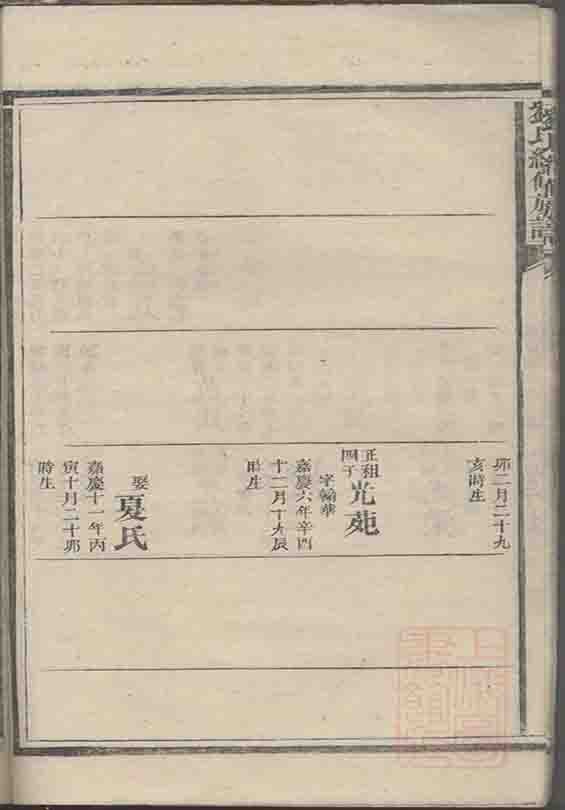 氏續修族譜
卯二月二十九
亥時生
正祖
四子
光苑
字翰華
嘉慶六年辛酉
十二月十九辰
時生
娶
夏氏
嘉慶十一年丙
寅十月二十卯
時生